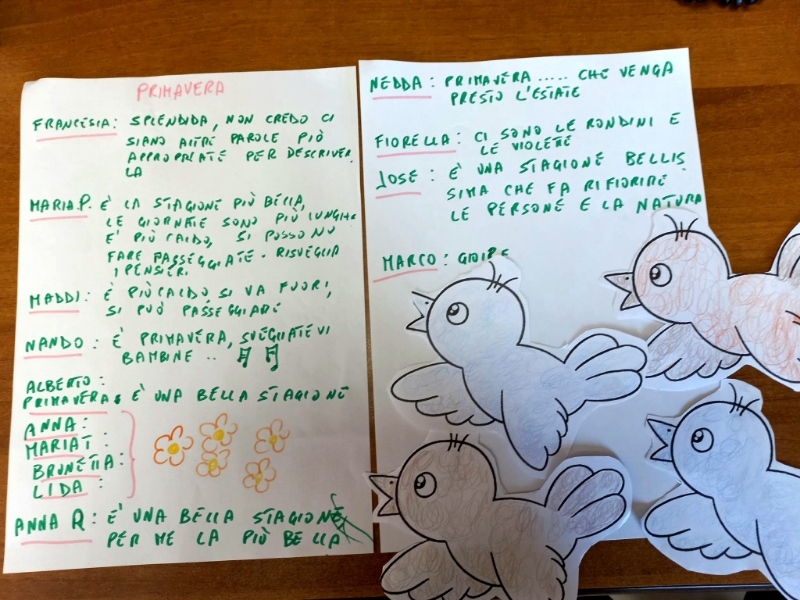 PRIMAVERA
FRANCESIA: SPLENDIDA, NON CREDO CI
SIANO ALTRE PAROLE PIÙ
APPROPRIATE PER DESCRIVER
LA
MARIA P. È LA STAGIONE PIÙ BELLA,
LE GIORNATE SONO PIÙ LUNGHE
E' PIÙ CALDO, SI POSSONO
FARE PASSEGGIATE. RISVEGLIA
I PENSIERI
MADDI: È PIÙ CALDO, SI VA FUORI,
SI PUÒ PASSEGGIARE
NANDO: È PRIMAVERA, SVEGLIATEVI
BAMBINE ..
ALBERTO:
PRIMAVERA È UNA BELLA STAGIONE
ANNA:
MARIA T:
BRUNETTA:
LIDA:
ANNA R: E' UNA BELLA STAGIONE
PER ME LA PIÙ BELLA
NEDDA: PRIMAVERA ..... CHE VENGA
PRESTO L'ESTATE
FIORELLA: CI SONO LE RONDINI E
LE VIOLETE
JOSE: È UNA STAGIONE BELLIS
SIMA CHE FA RIFIORIRE
LE PERSONE E LA NATURA
MARCO: